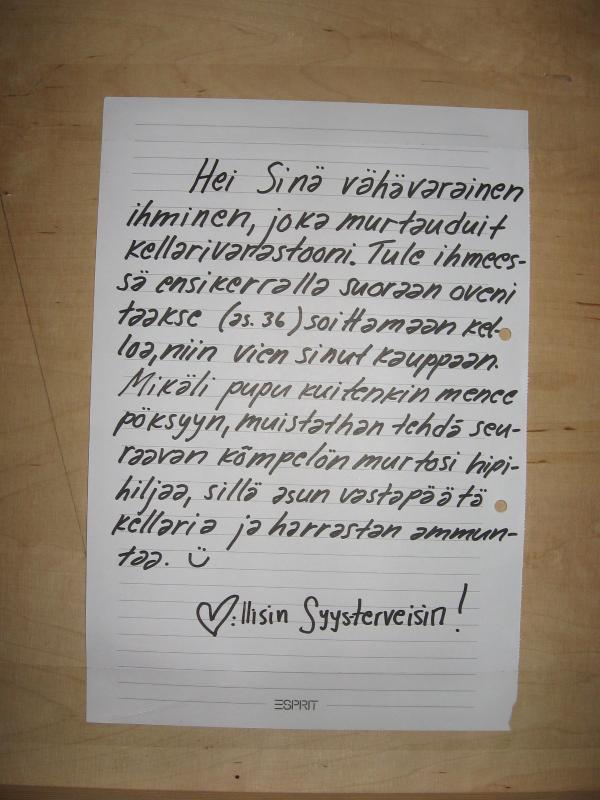 Hei Sinä vähävarainen
ihminen, joka murtauduit
kellarivarastooni. Tule ihmees-
sä ensikerralla suoraan oveni
taakse (as. 36) soittamaan kel-
loa, niin vien sinut kauppaan.
Mikäli pupu kuitenkin menee
pöksyyn, muistathan tehdä seu-
raavan kömpelön murtosi hipi-
hiljaa, sillä asun vastapäätä
kellaria ja harrastan ammun-
taa. Ü
♡:llisin Syysterveisin!
ESPRIT